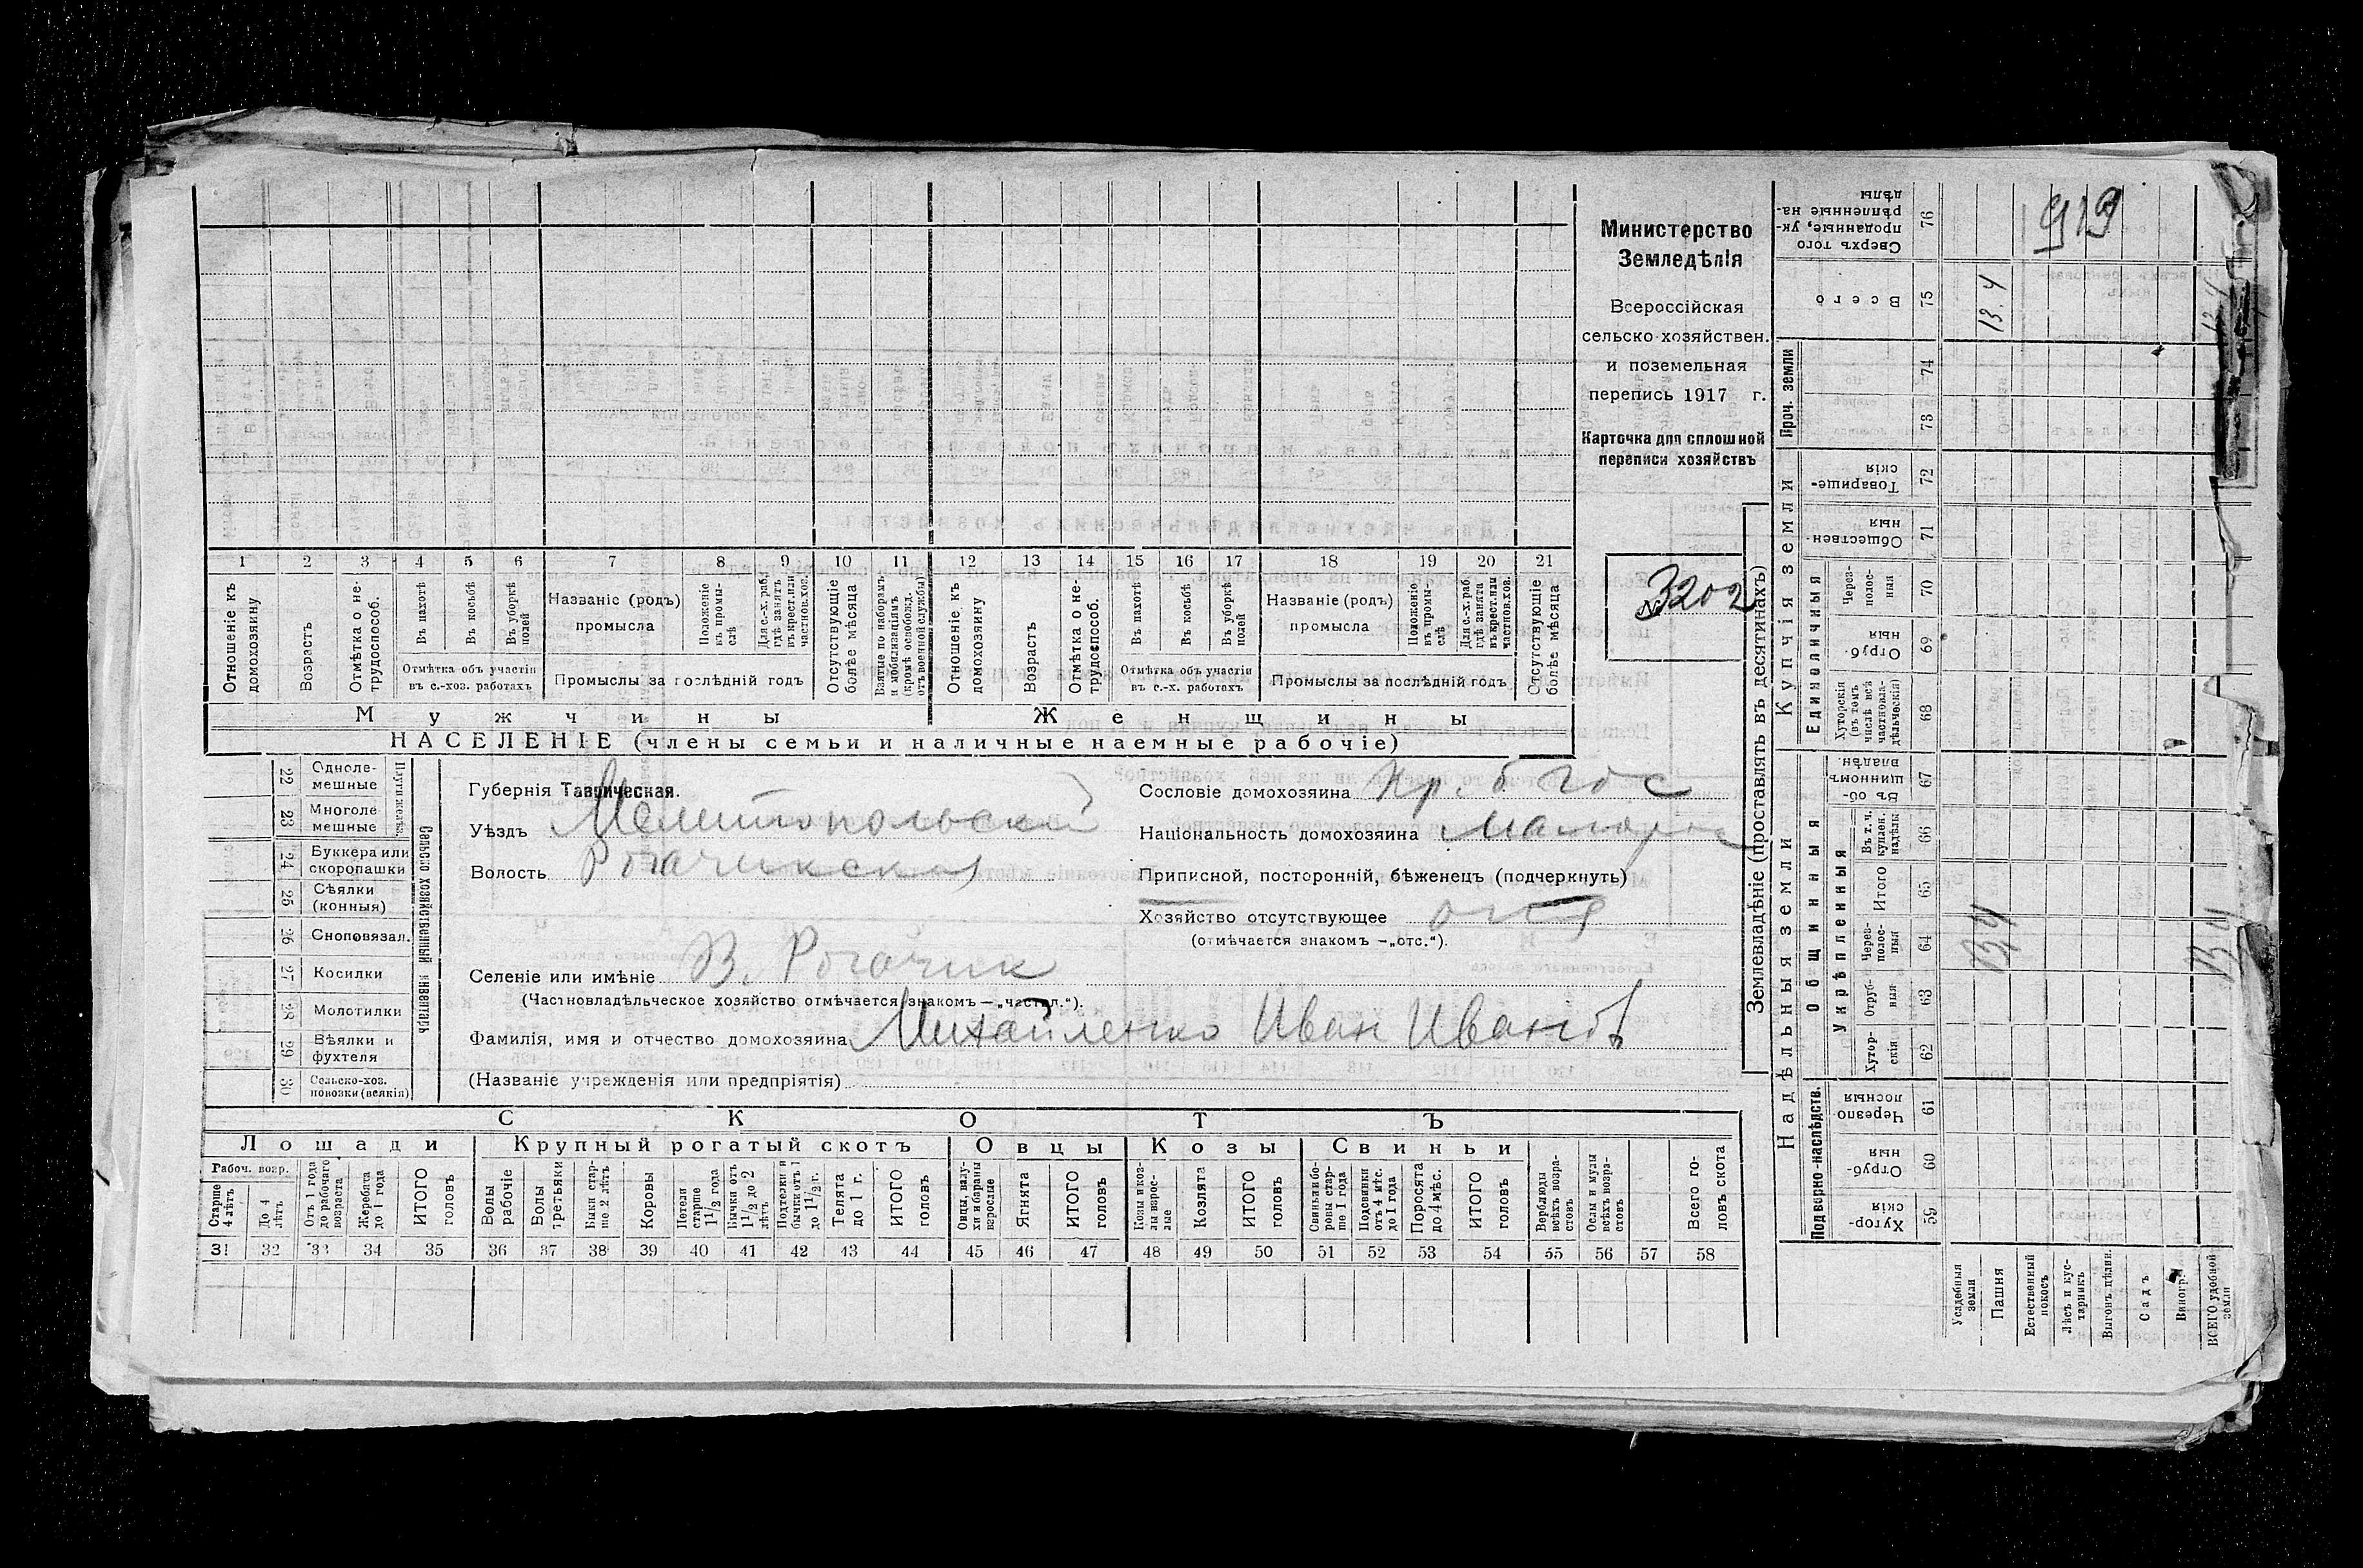 Министерство
Земледѣлія
Всероссійская
сельско-хозяйствен.
и поземельная
перепись 1917 г.
Карточка для сплошной
переписи хозяйствъ
3202
919
1 2 3 4 5 6 7 8 9 10 11 12 13 14 15 16 17 18 19 20 21
Отношеніе къ домохозяину
Возрастъ
Отмѣтка о не-трудоспособ.
Въ пахотѣ
Въ косьбѣ
Въ уборкѣ полей
Отмѣтка объ участіи въ с.-хоз. работахъ
Названіе (родъ) промысла
Положеніе въ промы-слѣ
Для с.-х. раб. гдѣ занятъ въ крест. или частнов. хоз.
Промыслы за послѣдній годъ
Отсутствующіе болѣе мѣсяца
Взятые по наборамъ и мобилизаціямъ (кромѣ освобожд. отъ военной службы)
Отношеніе къ домохозяину
Возрастъ
Отмѣтка о не-трудоспособ.
Въ пахотѣ
Въ косьбѣ
Въ уборкѣ полей
Отмѣтка объ участіи въ с.-х. работахъ
Названіе (родъ) промысла
Положеніе въ промы-слѣ
Для с.-х. раб. гдѣ занята въ крест. или частнов. хоз.
Промыслы за послѣдній годъ
Отсутствующіе болѣе мѣсяца
Мужчины
Женщины
НАСЕЛЕНІЕ (члены семьи и наличные наемные рабочіе)
22 Одноле-мешные
23 Многоле мешные
24 Буккера или скоропашки
25 Сѣялки (конныя)
26 Сноповязал.
27 Косилки
28 Молотилки
29 Вѣялки и фухтеля
30 Сельско-хоз. повозки (всякія)
Сельско хозяйственный инвентарь
Губернія Таврическая.
Уѣздъ Мелитопольский
Волость Рогачикская
Селеніе или имѣніе В. Рогачик
(Частновладѣльческое хозяйство отмѣчается знакомъ — „частвл.“).
Фамилія, имя и отчество домохозяина Михайленко Иван Иванов
(Названіе учрежденія или предпріятія)
Сословіе домохозяина Кр. б. гос
Національность домохозяина малорос
Приписной, посторонній, бѣженецъ (подчеркнуть)
Хозяйство отсутствующее отс
(отмѣчается знакомъ —„отс.“).
СКОТЪ
Лошади Крупный рогатый скотъ Овцы Козы Свиньи
Рабоч. возр.
Старше 4 лѣтъ
До 4 лѣтъ
Отъ 1 года до рабочаго возраста
Жеребята до 1 года
ИТОГО головъ
Волы рабочіе
Волы третьяки
Быки стар-ше 2 лѣтъ
Коровы
Нетели старше 1 1/2 года
Бычки отъ 1 1/2 до 2 лѣтъ
Подтелки и бычки отъ 1 до 1 1/2 г.
Телята до 1 г.
ИТОГО головъ
Овцы, валу-хи и бараны взрослые
Ягнята
ИТОГО головъ
Козы и коз-лы взрос-лые
Козлята
ИТОГО головъ
Свиньи и бо-ровы стар-ше 1 года
Подсвинки отъ 4 мѣс. до 1 года
Поросята до 4 мѣс.
ИТОГО головъ
Верблюды всѣхъ возра-стовъ
Ослы и мулы всѣхъ возра-стовъ
Всего го-ловъ скота
31 32 33 34 35 36 37 38 39 40 41 42 43 44 45 46 47 48 49 50 51 52 53 54 55 56 57 58
Землевладѣніе (проставлять въ десятинахъ)
Надѣльныя земли
Купчія земли
Проч. земли
Подворно-наслѣдств.
Общинныя
Укрѣпленныя
Единоличныя
Сверхъ того проданные, ук-рѣпленные на-дѣлы 76
Всего 75 13.4
74
73
Товарище-скія 72
Обществен-ныя 71
Через-полос-ныя 70
Отруб-ныя 69
Хуторскія (въ томъ числѣ всѣ частновла-дѣльческія) 68
Въ об-щинномъ владѣн. 67
Въ т. ч. куплен. надѣлы 66
Итого 65
Через-полос-ныя 64 13,4 13,4
Отруб-ныя 63
Хутор-скія 62
Черезпо-лосныя 61
Отруб-ныя 60
Хутор-скія 59
Усадебныя земли
Пашня
Естественный покосъ
Лѣсъ и кус-тарникъ
Выгонъ дѣлин.
Садъ
Виногр.
ВСЕГО удобной земли